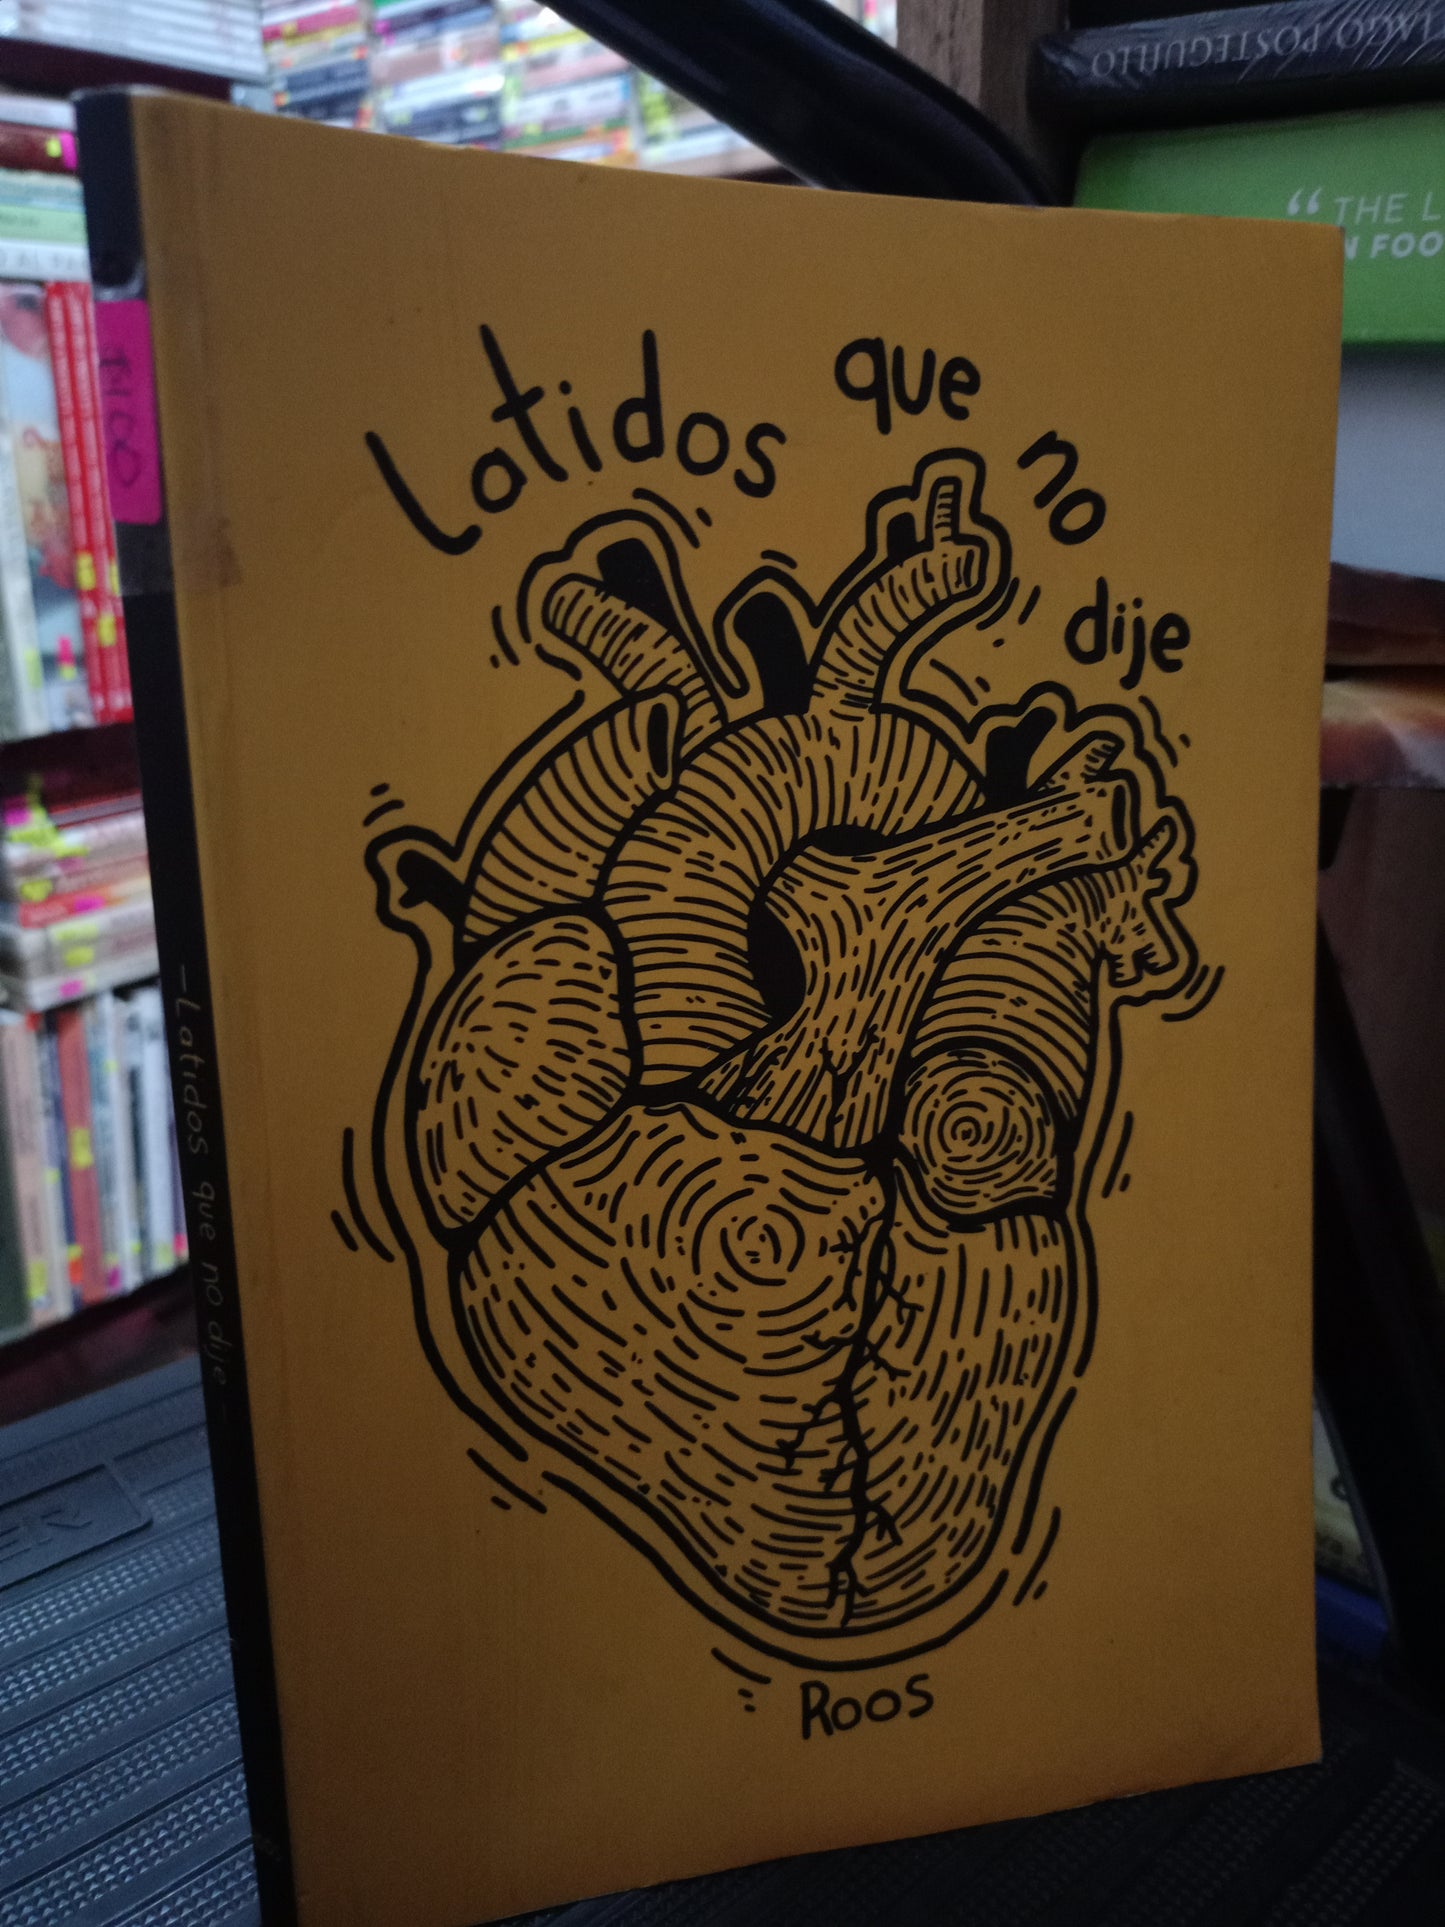 Latidos que no dije
Roos
-Latidos que no dije-
IAGO POSTEGUILLO
“THE L
N FOO